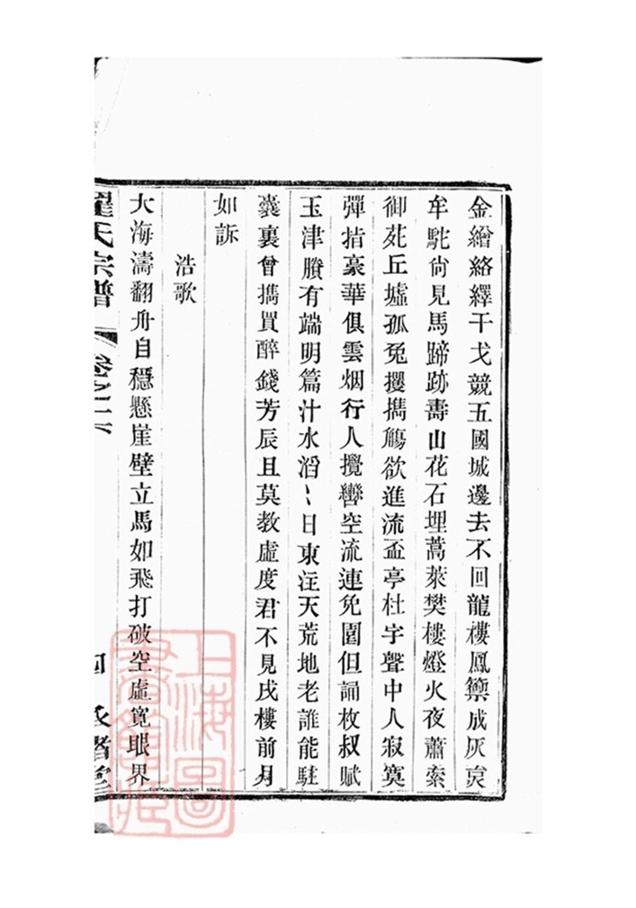 金繒絡繹干戈競五國城邊去不回龍樓鳳籞成灰㚖
牟駝尙見馬蹄跡壽山花石埋蒿萊樊樓燈火夜蕭索
御苑丘墟孤兔攫攜觴欲進流盃亭杜宇聲中人寂寞
彈指豪華俱雲烟行人攬轡空流連兔園但誦枚叔賦
玉津賸有端明篇汁水滔〻日東注天荒地老誰能駐
囊裏曾攜買醉錢芳辰且莫教虛度君不見戍樓前月
如訴
浩歌
大海濤翻舟自穩懸崖壁立馬如飛打破空虛寬眼界
翟氏宗譜
卷之二六
四
上海圖書館藏